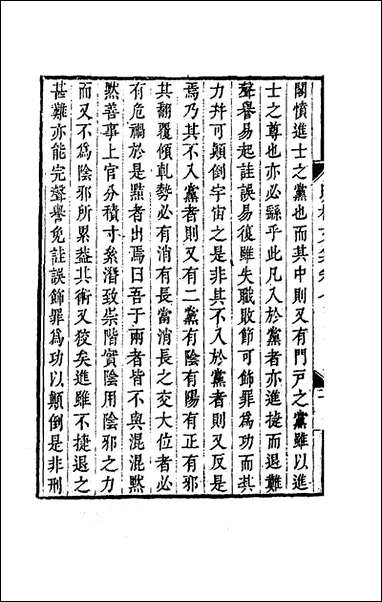 閣憤進士之黨也而其中則又有門戸之黨雖以進
士之尊也亦必繇乎此凡入於黨者亦進捷而退難
聲譽易起詿誤易復雖失職敗節可飾罪爲功而其
力幷可顛倒宇宙之是非其不入於黨者則又反是
焉乃其不入黨者則又有二黨有陰有陽有正有邪
其翻覆傾軋勢必有消有長當消長之交大位者必
有危禍於是黠者出焉曰吾于兩者皆不與混混黙
然善事上官分積寸絫潛致崇階實陰用陰邪之力
而又不爲陰邪所累葢其術又狡矣進雖不捷退之
甚難亦能完聲譽免詿誤飾罪爲功以顛倒是非刑